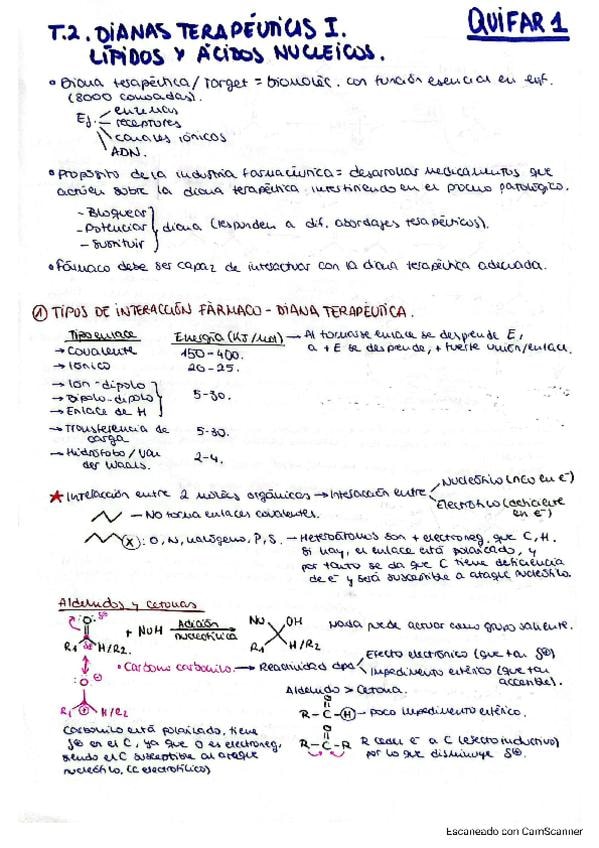 T.2. DIANAS TERAPÉUTICAS I.
QUIFAR 1
LÍPIDOS Y ÁCIDOS NUCLEICOS.
• Diana terapéutica/Target = biomoléc. con función esencial en enf.
(8000 conocidas).
Ej. enzimas
receptores
canales iónicos
ADN.
• Propósito de la industria farmacéutica = desarrollar medicamentos que
actúen sobre la diana terapéutica interfiriendo en el proceso patológico.
- Bloquear
- Potenciar } diana (responden a dif. abordajes terapéuticos).
- Sustituir
• Fármaco debe ser capaz de interactuar con la diana terapéutica adecuada.
① TIPOS DE INTERACCIÓN FÁRMACO - DIANA TERAPÉUTICA.
Tipo enlace Energía (KJ/mol) → Al formarse enlace se desprende E,
→ Covalente 150-400. a + E se desprende, + fuerte unión/enlace.
→ Iónico 20-25.
→ Ion-dipolo
→ Dipolo-dipolo } 5-30.
→ Enlace de H
→ Transferencia de 5-30.
carga
→ Hidrófobo/Van 2-4.
der Waals.
★ Interacción entre 2 moléc orgánicas → Interacción entre Nucleófilo (rico en e⁻)
Electrófilo (deficiente
en e⁻)
- No forma enlaces covalentes.
(X) : O, N, halógeno, P, S. - Heteroátomos son + electroneg. que C, H.
Si hay, el enlace está polarizado, y
por tanto se da que C tiene deficiencia
de e⁻ y será susceptible a ataque nucleófilo.
Aldehídos y cetonas
O δ⊖
R₁ H/R₂. + NuH Adición nucleofílica Nu OH R₁ H/R₂ Nada puede actuar como grupo saliente.
• Carbono carbonilo. → Reactividad dpd Efecto electrónico (que tan δ⊕)
Impedimento estérico (que tan
accesible).
O⊖
R₁ ⊕ H/R₂
Aldehído > Cetona.
O
R - C - (H) - poco impedimento estérico.
O
R - C - R R ceden e⁻ a C (efecto inductivo)
por lo que disminuye δ⊕.
Carbonilo está polarizado, tiene
δ⊕ en el C, ya que O es electroneg,
siendo el C susceptible al ataque
nucleófilo. (C electrofílico)
Escaneado con CamScanner